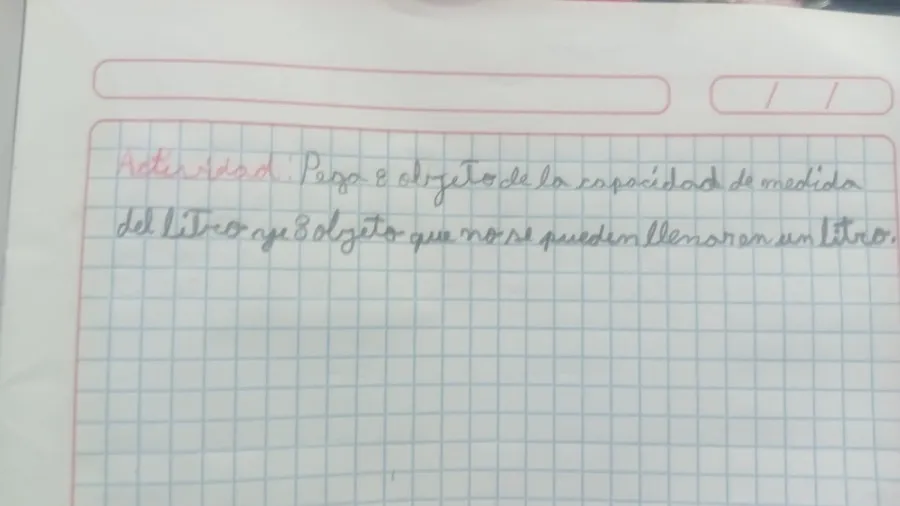 Actividad: Pega 8 objeto de la capacidad de medida
del litro y 8 objeto que no se pueden llenar en un litro.
/ /